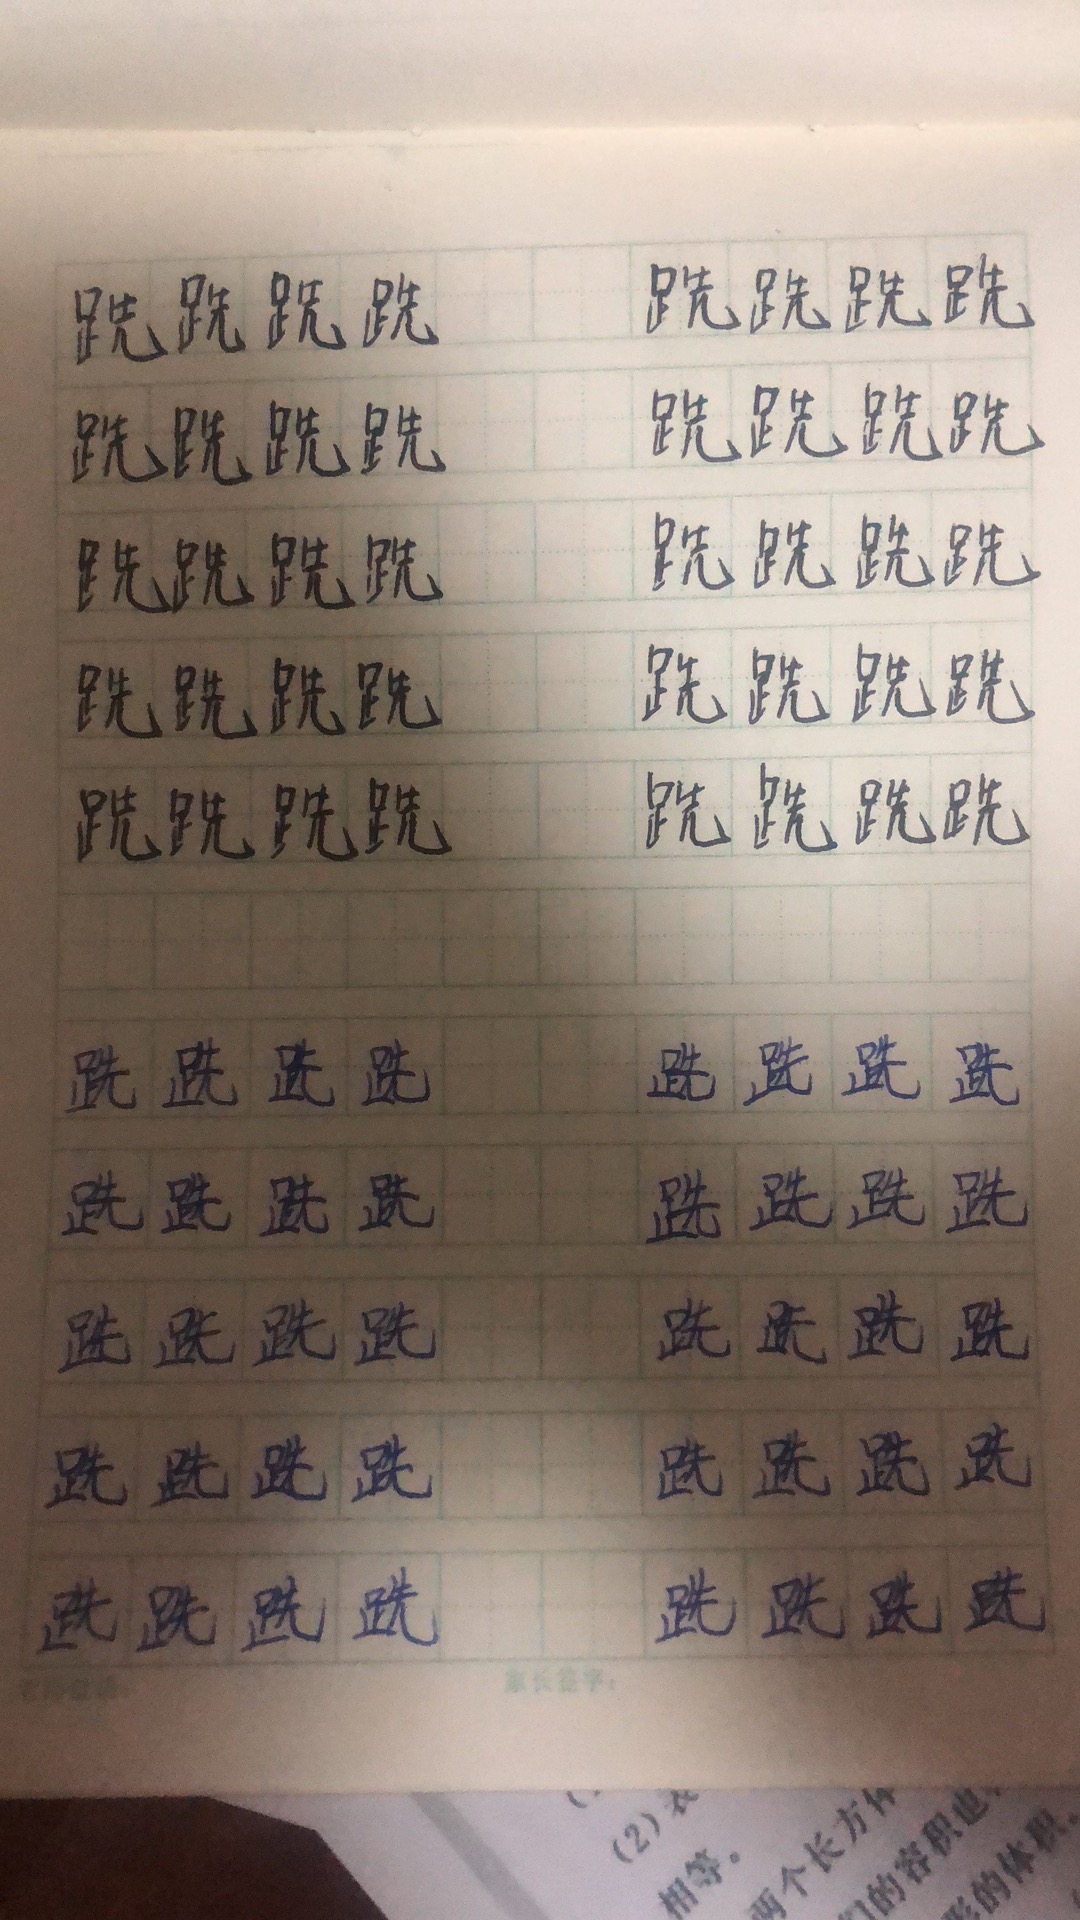 跣跣跣跣 跣跣跣跣
跣跣跣跣 跣跣跣跣
跣跣跣跣 跣跣跣跣
跣跣跣跣 跣跣跣跣
跣跣跣跣 跣跣跣跣
跣跣跣跣 跣跣跣跣
跣跣跣跣 跣跣跣跣
跣跣跣跣 跣跣跣跣
跣跣跣跣 跣跣跣跣
跣跣跣跣 跣跣跣跣
家长签字：
(2)表
相等。
两个长方体
们的容积也
形的体积